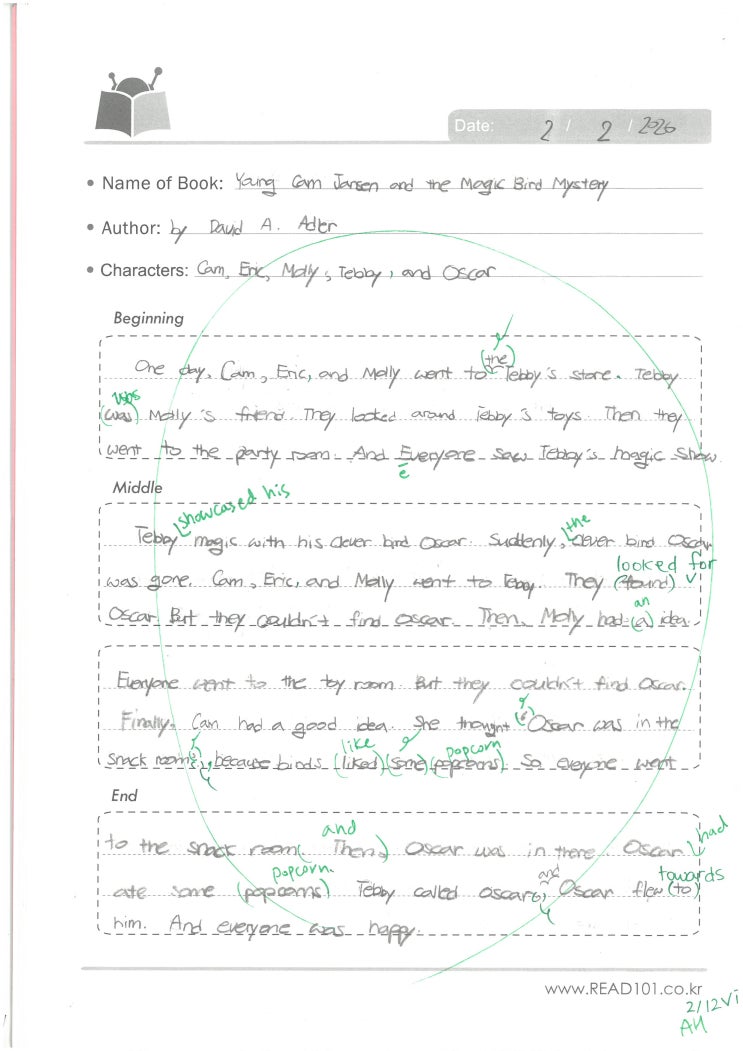 Date: 2 / 2 / 2026
• Name of Book: Young Cam Jansen and the Magic Bird Mystery
• Author: by David A. Adler
• Characters: Cam, Eric, Molly, Tebby, and Oscar
Beginning
One day, Cam, Eric, and Molly went to (the) Tebby's store. Tebby
was
(was) Molly's friend. They looked around Tebby's toys. Then they
went to the party room. And Everyone saw Tebby's magic show.
e
Middle
showcased his
Tebby magic with his clever bird Oscar. Suddenly, clever bird Oscar
the
looked for
was gone. Cam, Eric, and Molly went to Tebby. They (found)
an
Oscar. But they couldn't find Oscar. Then, Molly had (a) idea.
Everyone went to the toy room. But they couldn't find Oscar.
Finally, Cam had a good idea. She thought Oscar was in the
like popcorn
snack room, because birds (liked) (some) (popcorns). So everyone went
End
and had
to the snack room( Then,) Oscar was in there. Oscar
popcorn. and towards
ate some (popcorns) Tebby called Oscar, Oscar flew (to)
him. And everyone was happy.
www.READ101.co.kr
2/12